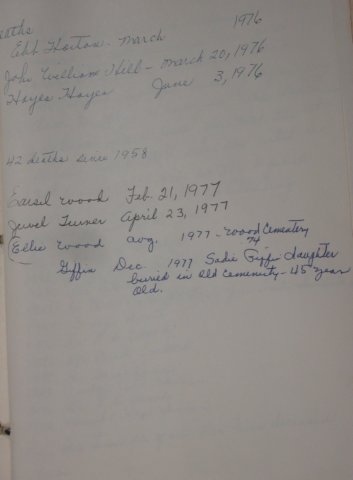 eaths 1976
Ebb Horton - March
John William Hill - March 20, 1976
Hoyes Hayes June 3, 1976
42 deaths since 1958
Earsil Wood Feb. 21, 1977
Jewel Turner April 23, 1977
Ellie Wood Aug. 1977 - Wood Cementery
74
Giffin Dec. 1977 Sadie Giffin daughter
buried in old Cementy - 45 year
old.